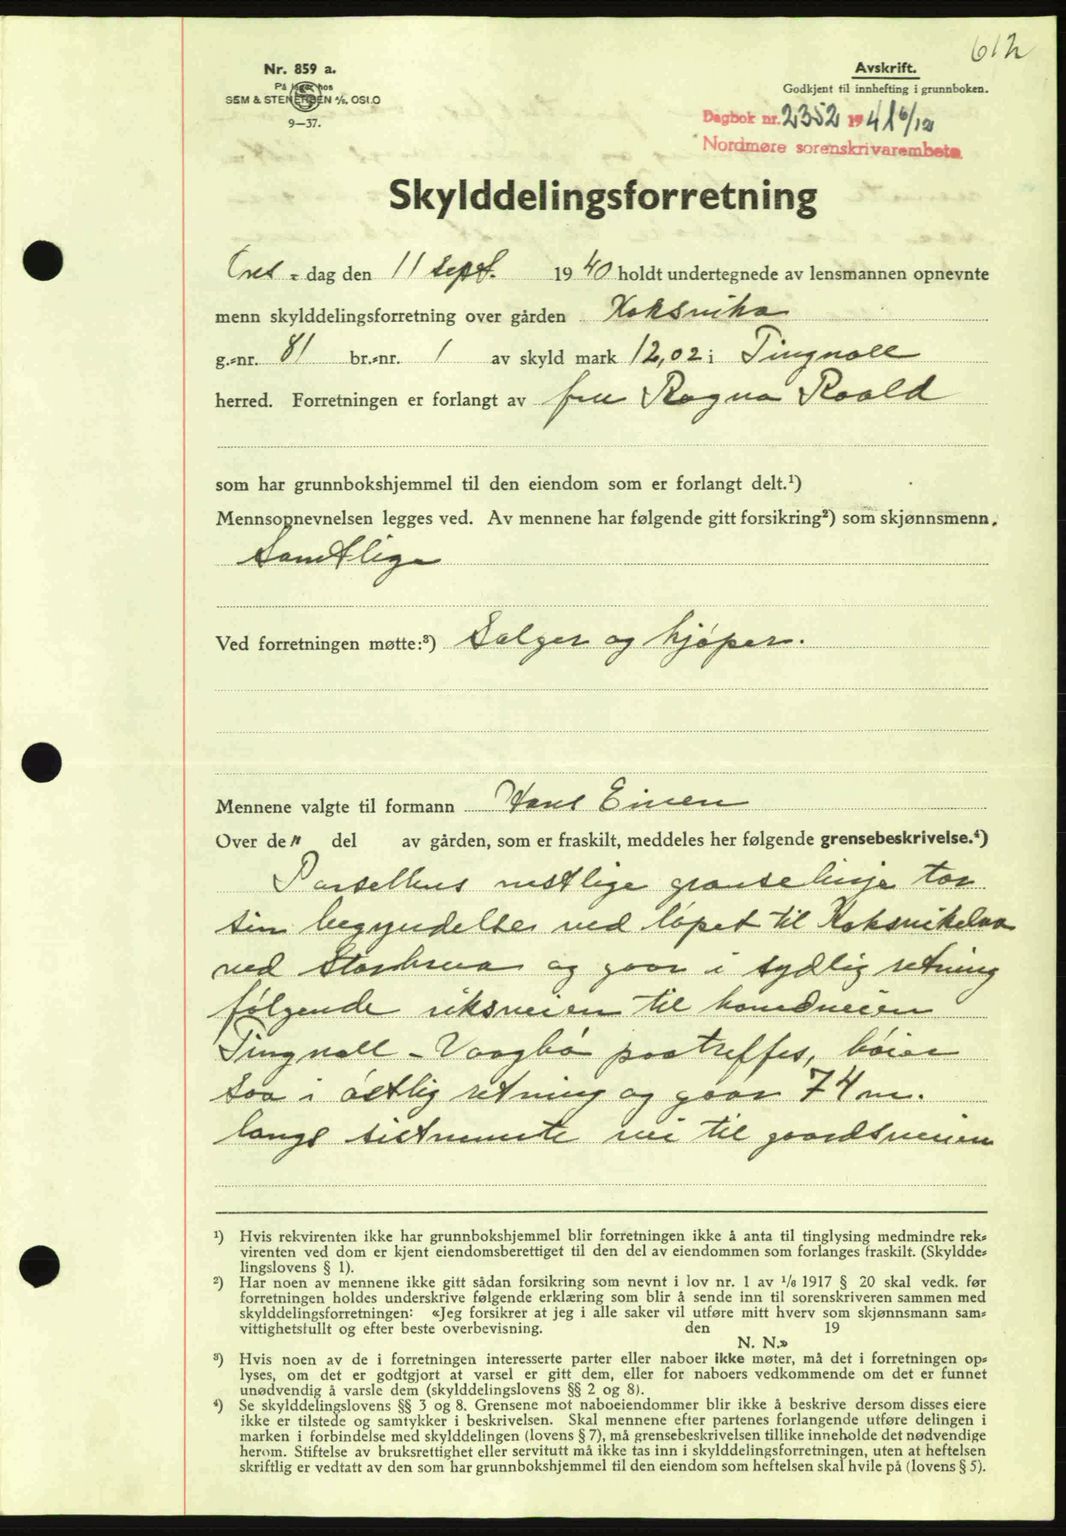 612
Nr. 859 a.
På lager hos
SEM & STENERSEN A/S, OSLO
9—37.
Avskrift.
Godkjent til innhefting i grunnboken.
Dagbok nr. 2352 1941 6/12
Nordmøre sorenskrivarembete
Skylddelingsforretning
Ons - dag den 11 sept. 1940 holdt undertegnede av lensmannen opnevnte
menn skylddelingsforretning over gården Koksvika
g.-nr. 81 br.-nr. 1 av skyld mark 12,02 i Tingvoll
herred. Forretningen er forlangt av fru Ragna Roald
som har grunnbokshjemmel til den eiendom som er forlangt delt.¹)
Mennsopnevnelsen legges ved. Av mennene har følgende gitt forsikring²) som skjønnsmenn.
Samtlige
Ved forretningen møtte:³) Selger og kjøper.
Mennene valgte til formann Hans Einen
Over de n del av gården, som er fraskilt, meddeles her følgende grensebeskrivelse.⁴)
Parsellens vestlige grænselinje tar
sin begyndelse ved løpet til Koksvikelva
ved Storbrua og gaar i sydlig retning
følgende riksveien til hovedveien
Tingvoll - Vaagbø paatreffes, bøier
saa i østlig retning og gaar 74 m.
langs sistnevnte vei til gaardsveien
¹) Hvis rekvirenten ikke har grunnbokshjemmel blir forretningen ikke å anta til tinglysing medmindre rek-
virenten ved dom er kjent eiendomsberettiget til den del av eiendommen som forlanges fraskilt. (Skyldde-
lingslovens § 1).
²) Har noen av mennene ikke gitt sådan forsikring som nevnt i lov nr. 1 av 1/6 1917 § 20 skal vedk. før
forretningen holdes underskrive følgende erklæring som blir å sende inn til sorenskriveren sammen med
skylddelingsforretningen: «Jeg forsikrer at jeg i alle saker vil utføre mitt hverv som skjønnsmann sam-
vittighetsfullt og efter beste overbevisning. den 19
N. N.»
³) Hvis noen av de i forretningen interesserte parter eller naboer ikke møter, må det i forretningen op-
lyses, om det er godtgjort at varsel er gitt dem, eller for naboers vedkommende om det er funnet
unødvendig å varsle dem (skylddelingslovens §§ 2 og 8).
⁴) Se skylddelingslovens §§ 3 og 8. Grensene mot naboeiendommer blir ikke å beskrive dersom disses eiere
ikke er tilstede og samtykker i beskrivelsen. Skal mennene efter partenes forlangende utføre delingen i
marken i forbindelse med skylddelingen (lovens § 7), må grensebeskrivelsen tillike inneholde det nødvendige
herom. Stiftelse av bruksrettighet eller servitutt må ikke tas inn i skylddelingsforretningen, uten at heftelsen
skriftlig er vedtatt av den som har grunnbokshjemmel til den eiendom som heftelsen skal hvile på (lovens § 5).